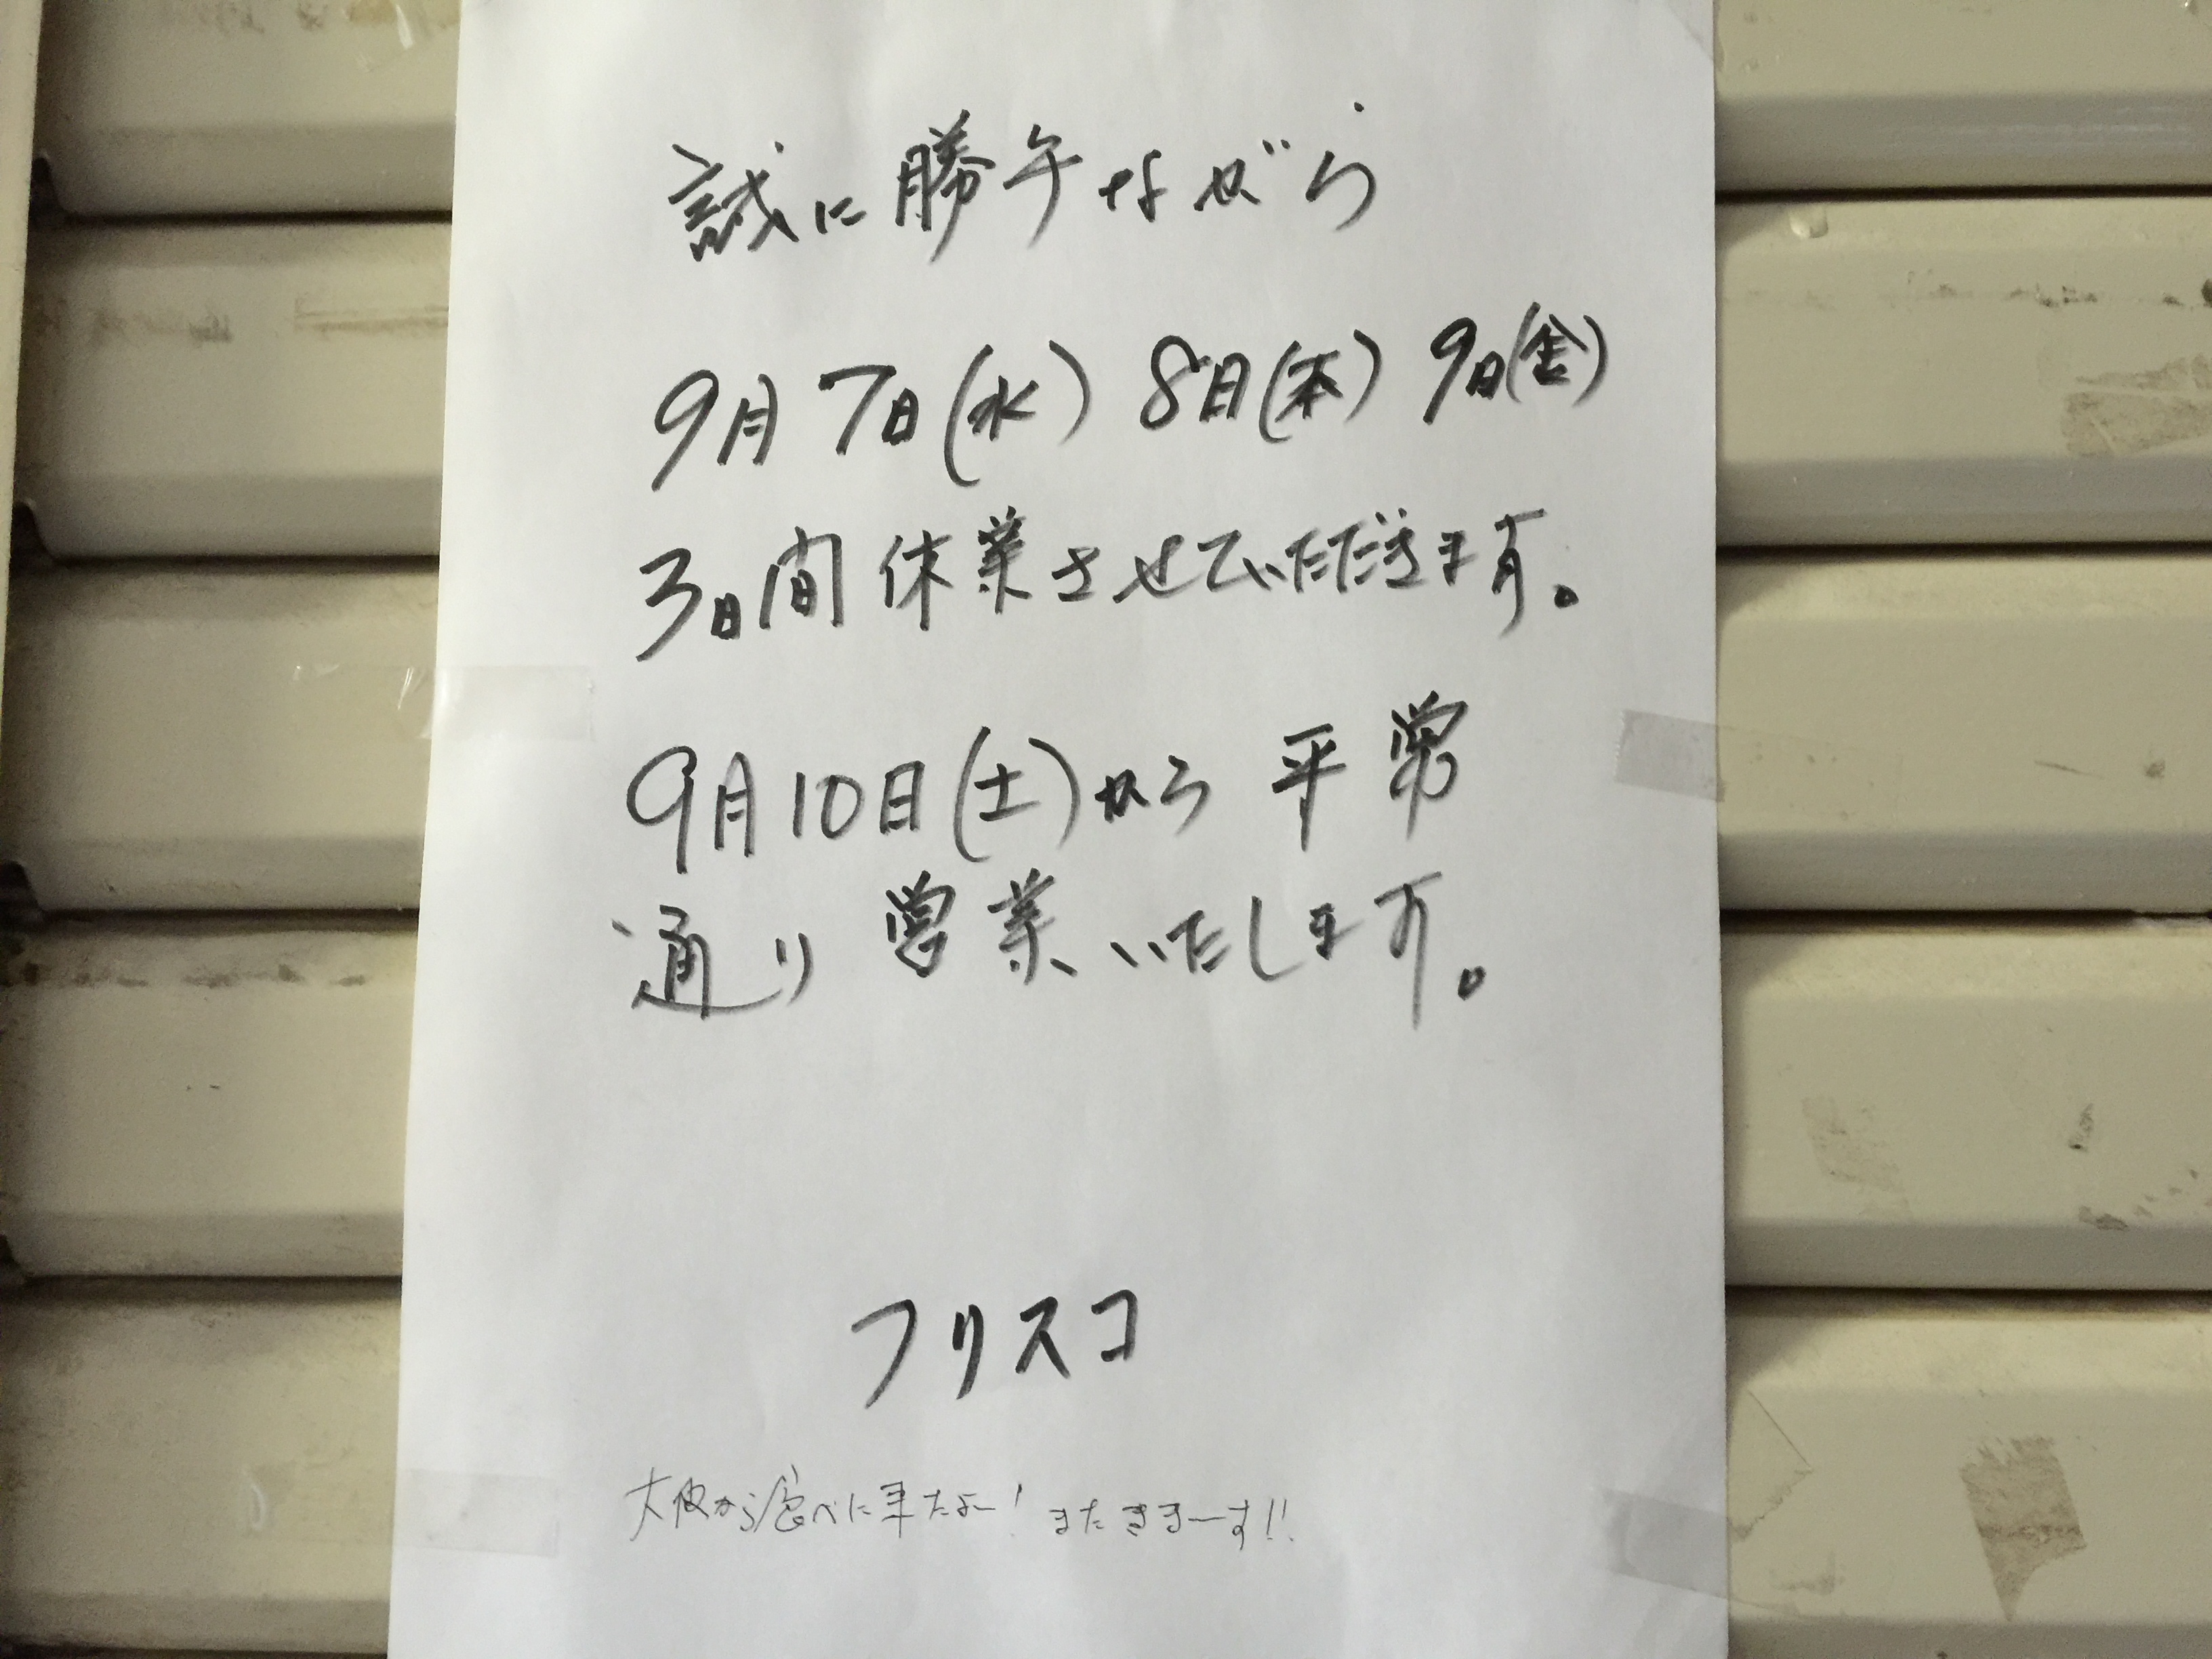 誠に勝手ながら
9月7日(水) 8日(木) 9日(金)
3日間休業させていただきます。
9月10日(土)から平常
通り営業いたします。
フリスコ
大阪から食べに来たよー! またきまーす!!